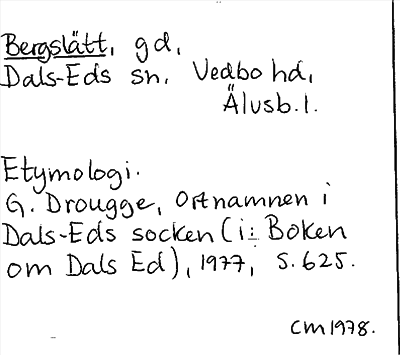 Bergslätt, gd,
Dals-Eds sn, Vedbo hd,
Älvsb. l.
Etymologi.
G. Drougge, Ortnamnen i
Dals-Eds socken (i: Boken
om Dals Ed), 1977, S. 625.
CM1978.